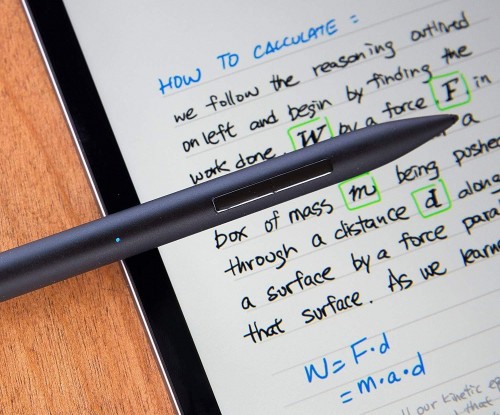 HOW TO CALCULATE :
we follow the reasoning outlined
on left and begin by finding the
work done W by a force F in
a
box of mass m being pushed
through a distance d
a surface by a force
that surface. As we
W = F·d
= m·a·d
our kinetic
that